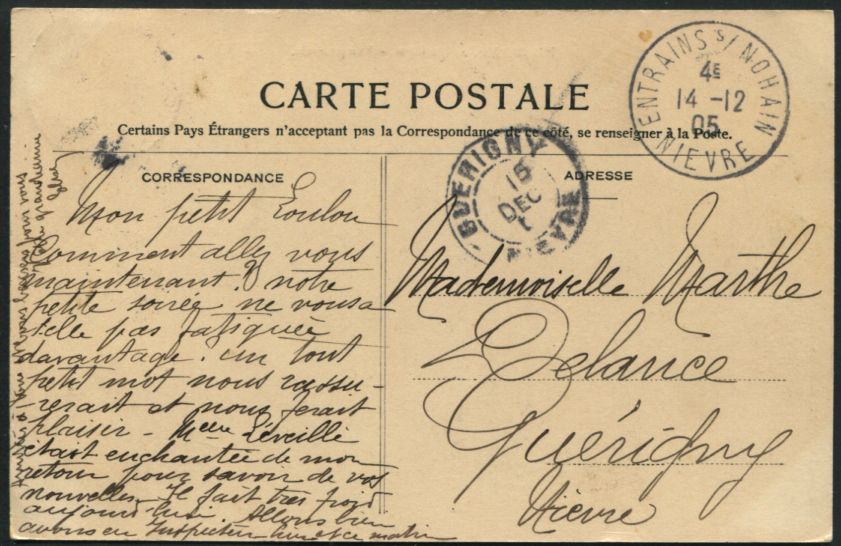 CARTE POSTALE
Certains Pays Étrangers n'acceptent pas la Correspondance de ce côté, se renseigner à la Poste.
ENTRAINS S/ NOHAIN
4E
14 -12
05
NIEVRE
GUERIGNY
15
DEC
NIEVRE
CORRESPONDANCE
Mon petit Loulou
Comment allez vous
maintenant ? notre
petite soirée ne vous a
t elle pas fatiguée
davantage. un tout
petit mot nous rassu-
-rerait et nous ferait
plaisir - Léveillé
était enchantée de mon
retour pour savoir de vos
nouvelles. Il fait très froid
aujourd'hui. Allons bien
avons eu Inspecteur hier et ce matin
ADRESSE
Mademoiselle Marthe
Delance
Guérigny
Nièvre